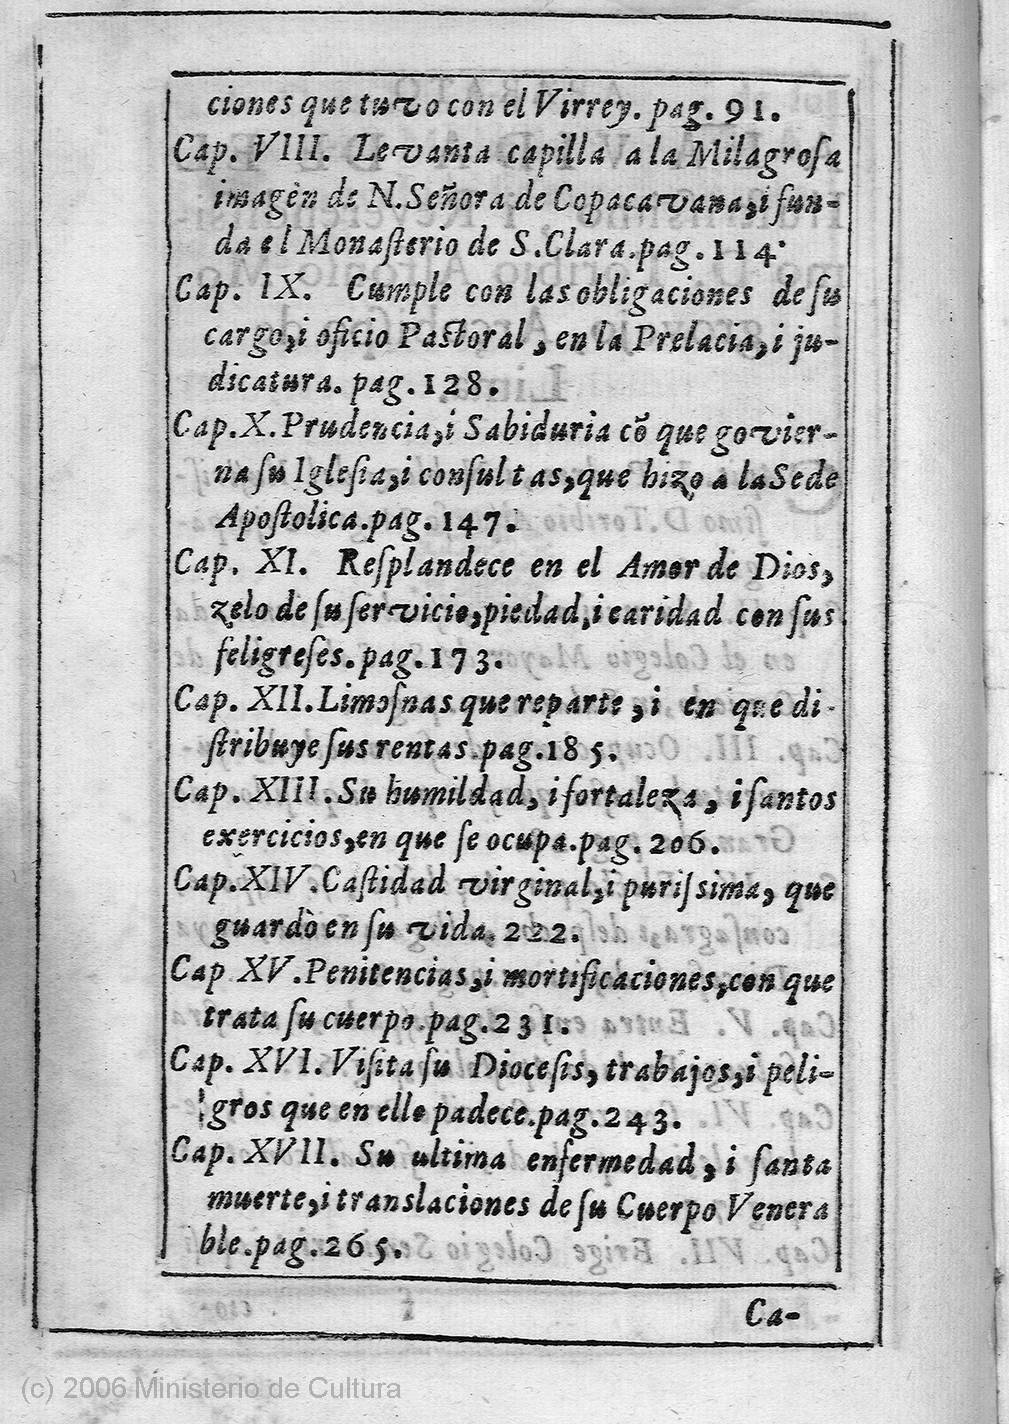 ciones que tuvo con el Virrey. pag. 91.
Cap. VIII. Levanta capilla a la Milagroſa
imagèn de N. Señora de Copacavana, i fun-
da el Monaſterio de S. Clara. pag. 114.
Cap. IX. Cumple con las obligaciones de ſu
cargo, i oficio Paſtoral, en la Prelacia, i ju-
dicatura. pag. 128.
Cap. X. Prudencia, i Sabiduria cõ que govier-
na ſu Igleſia, i conſultas, que hizo a la Sede
Apoſtolica. pag. 147.
Cap. XI. Reſplandece en el Amor de Dios,
zelo de ſu ſervicio, piedad, i caridad con ſus
feligreſes. pag. 173.
Cap. XII. Limoſnas que reparte, i en que di-
ſtribuye ſus rentas. pag. 185.
Cap. XIII. Su humildad, i fortaleza, i ſantos
exercicios, en que ſe ocupa. pag. 206.
Cap. XIV. Caſtidad virginal, i puriſsima, que
guardò en ſu vida. 222.
Cap XV. Penitencias, i mortificaciones, con que
trata ſu cuerpo. pag. 231.
Cap. XVI. Viſita ſu Dioceſis, trabajos, i peli-
gros que en ello padece. pag. 243.
Cap. XVII. Su ultima enfermedad, i ſanta
muerte, i translaciones de ſu Cuerpo Venera
ble. pag. 265.
Ca-
(c) 2006 Ministerio de Cultura